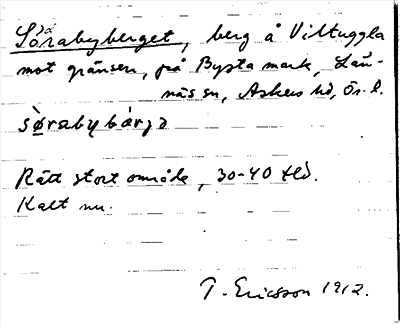 Sörabyberget, berg å Viltuggla
mot gränsen, på Bysta mark, Län-
näs sn, Askers hd, Ör. l.
sò̀raby bàrjə
Rätt stort område, 30-40 tld.
Kalt nu.
T. Ericsson 1912.